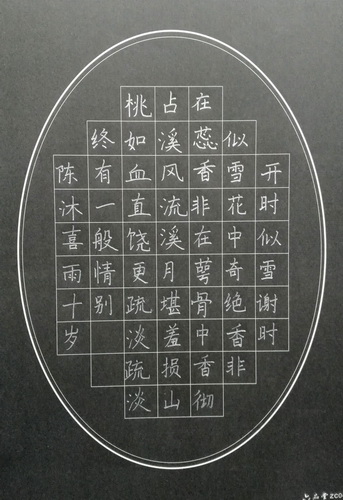 开时似雪谢时
似雪花中奇绝香非
在蕊香非在萼骨中香彻
占溪风流溪月堪羞损山
桃如血直饶更疏淡疏淡
终有一般情别
陈沐喜雨十岁